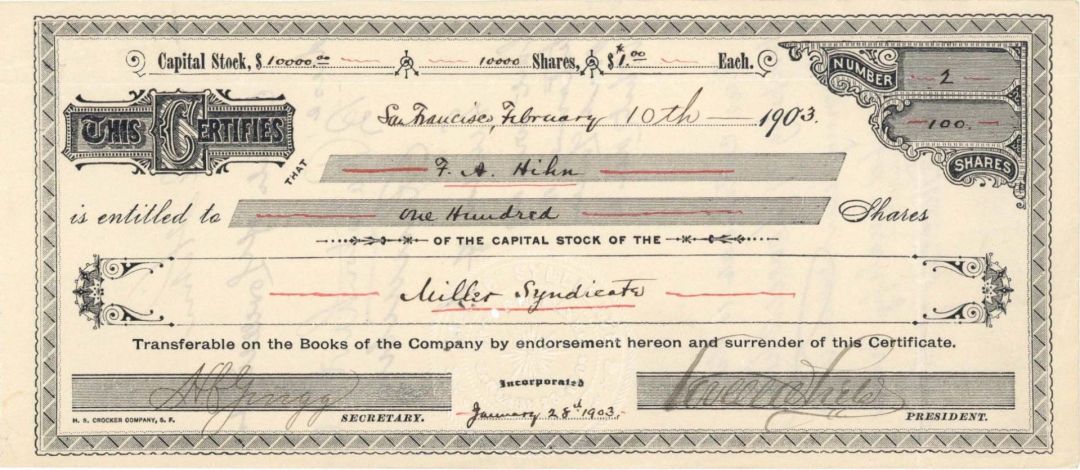 Capital Stock, $ 10000.00 10000 Shares, $1.00 Each.
NUMBER 2
THIS CERTIFIES
San Francisco, February 10th 1903.
100.
THAT F. A. Hihn
SHARES
is entitled to One Hundred Shares
OF THE CAPITAL STOCK OF THE
Miller Syndicate
Transferable on the Books of the Company by endorsement hereon and surrender of this Certificate.
Incorporated
January 28th 1903.
SECRETARY.
PRESIDENT.
H. S. CROCKER COMPANY, S. F.